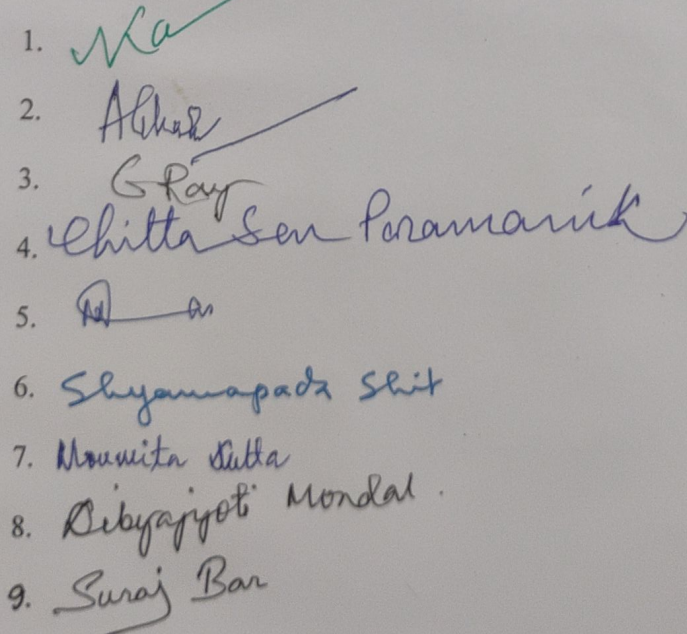 1.
2.
3. G Ray
4. Chitta Sen Paramanik
5.
6. Shyamapada Shit
7. Moumita Dutta
8. Dibyajyoti Mondal.
9. Suraj Bar